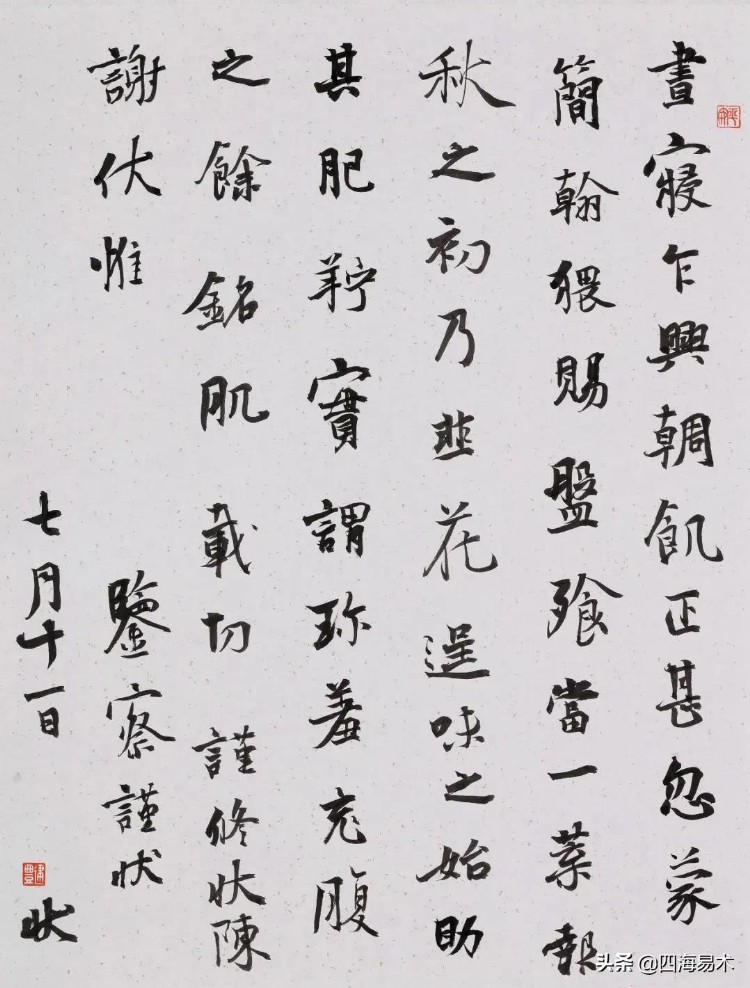 晝寢乍興輖飢正甚忽蒙
簡翰猥賜盤飧當一葉報
秋之初乃韭花逞味之始助
其肥羜實謂珎羞充腹
之餘銘肌載切謹修狀陳
謝伏惟
鑒察謹狀
七月十一日
狀
头条 @四海易木